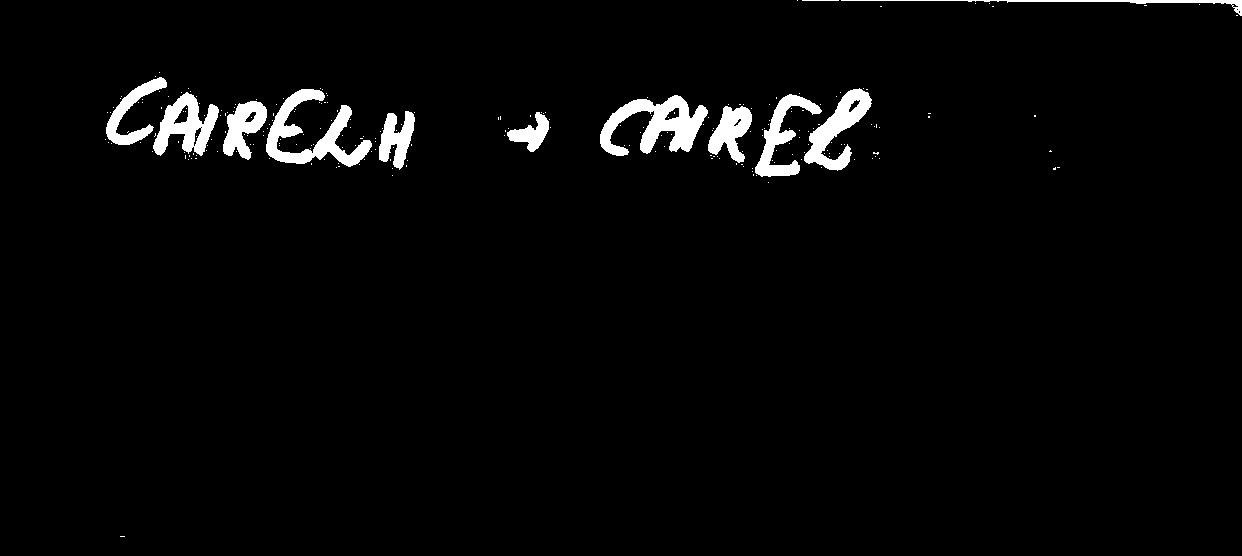 CAIRELH → CAIREL